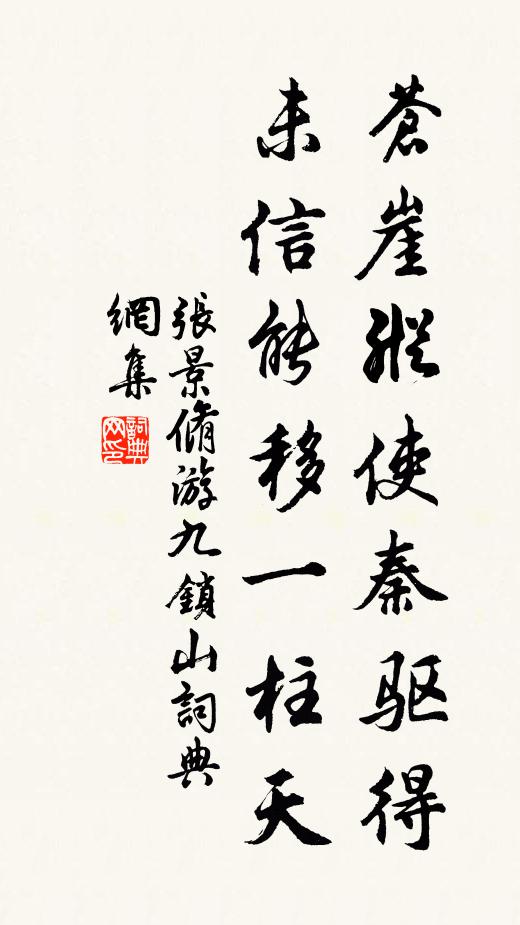 蒼崖縱使秦驱得
未信能移一柱天
張景脩游九鎖山詞典
網集
詞典网印